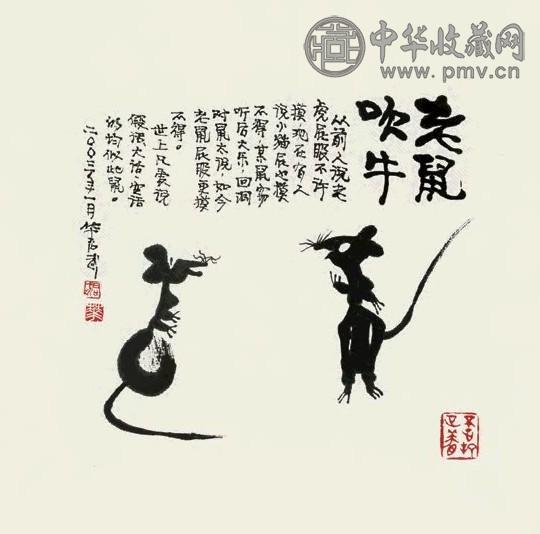 中华收藏网
www.pmv.cn
老鼠
吹牛
从前人说老
虎屁股不许
摸,现在有人
说小猫屁也摸
不得。某鼠窃
听后大乐,回洞
对鼠太说,如今
老鼠屁股更摸
不得。
世上凡爱说
假话大话空话
的均似此鼠。
二〇〇三年一月 华君武